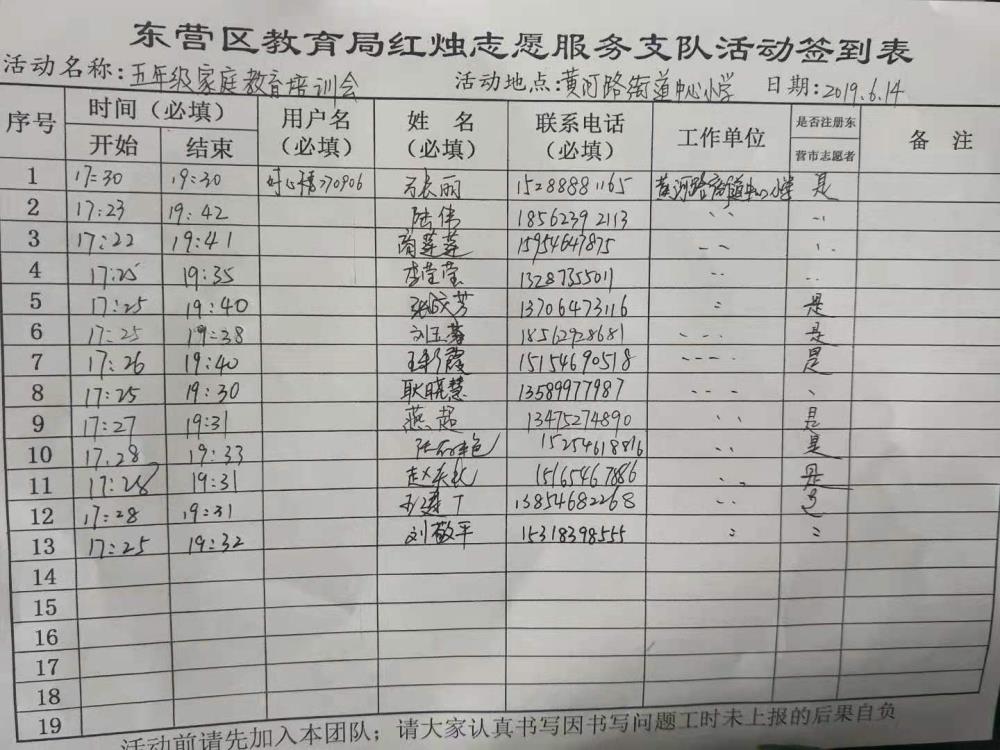 东营区教育局红烛志愿服务支队活动签到表
活动名称:五年级家庭教育培训会 活动地点:黄河路街道中心小学 日期:2019.6.14
序号 时间（必填） 用户名（必填） 姓 名（必填） 联系电话（必填） 工作单位 是否注册东营市志愿者 备 注
开始 结束
1 17:30 19:30 270906 丽 15288881165 黄河路街道中心小学 是
2 17:23 19:42 陆伟 18562392113
3 17:22 19:41 商莲莲 15954647875
4 17:25 19:35 李莹莹 13287355011
5 17:25 19:40 张 芳 13706473116 是
6 17:25 19:38 刘玉 18562928681 是
7 17:26 19:40 王彩霞 15154690518 是
8 17:25 19:30 耿晓慧 13589977987
9 17:27 19:31 燕超 13475274890 是
10 17.28 19:33 15254618816 是
11 17:28 19:31 赵 秋 15165467886 是
12 17:28 19:31 13854682268
13 17:25 19:32 刘敬平 15318398555
14
15
16
17
18
19
活动前请先加入本团队；请大家认真书写因书写问题工时未上报的后果自负